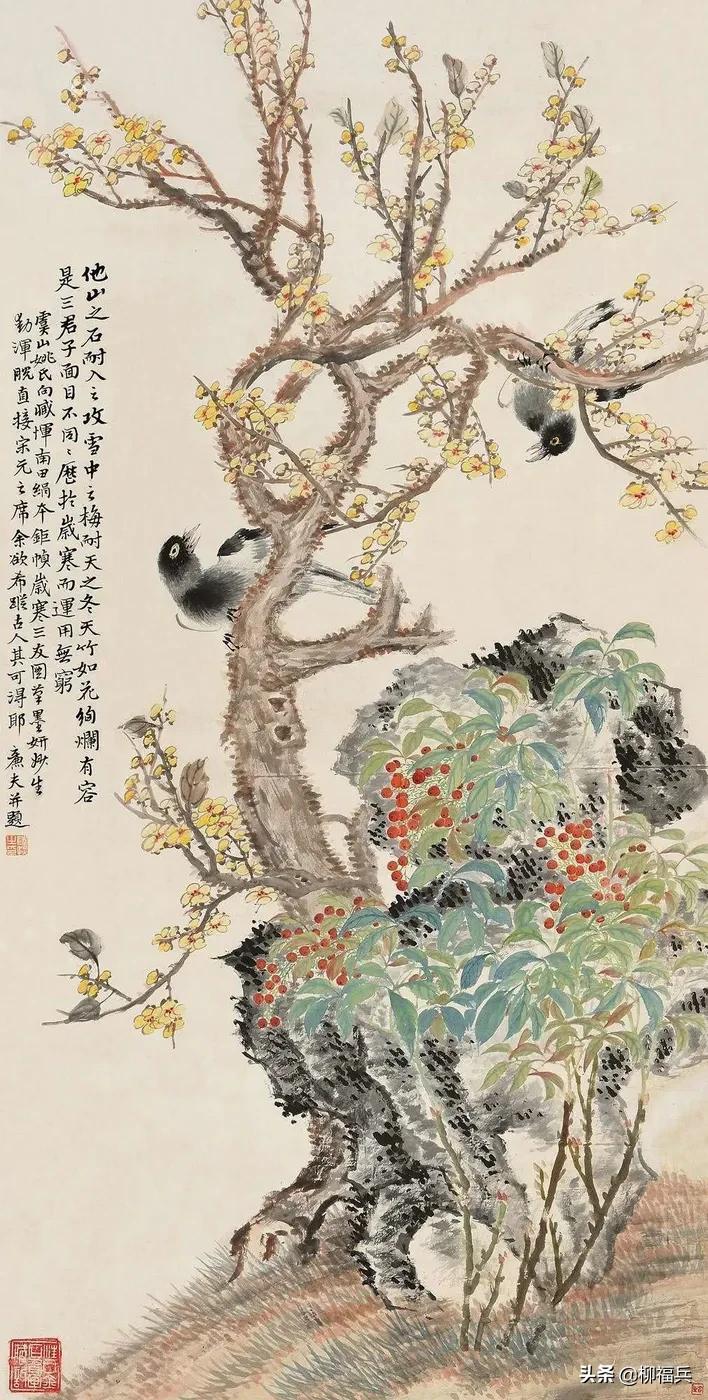 他山之石耐人之攻雪中之梅耐天之冬天竹如花絢爛有容
是三君子面目不同同歷於歲寒而運用無窮
虞山姚氏向藏惲南田絹本鉅幀歲寒三友圖筆墨妍妙生
動渾脫直接宋元之席余欲希蹤古人其可得耶 廉夫并題
头条 @柳福兵